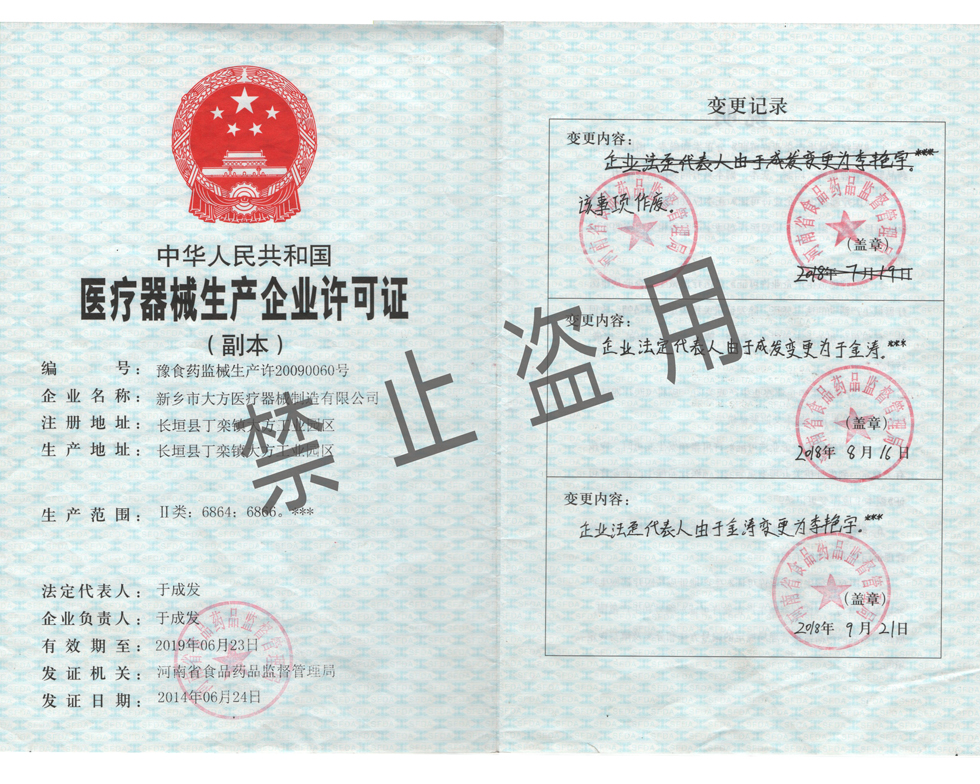 中华人民共和国
医疗器械生产企业许可证
(副本)
编号：豫食药监械生产许20090060号
企业名称：新乡市大方医疗器械制造有限公司
注册地址：长垣县丁栾镇大方工业园区
生产地址：长垣县丁栾镇大方工业园区
生产范围：II类：6864；6866。***
法定代表人：于成发
企业负责人：于成发
有效期至：2019年06月23日
发证机关：河南省食品药品监督管理局
发证日期：2014年06月24日
河南省食品药品监督管理局
变更记录
变更内容：
企业法定代表人由于成发变更为李艳宇。***
该事项作废。
河南省食品药品监督管理局
河南省食品药品监督管理局
(盖章)
2018年7月19日
变更内容：
企业法定代表人由于成发变更为于金涛。***
河南省食品药品监督管理局
(盖章)
2018年8月16日
变更内容：
企业法定代表人由于金涛变更为李艳宇。***
河南省食品药品监督管理局
(盖章)
2018年9月21日
禁止盗用